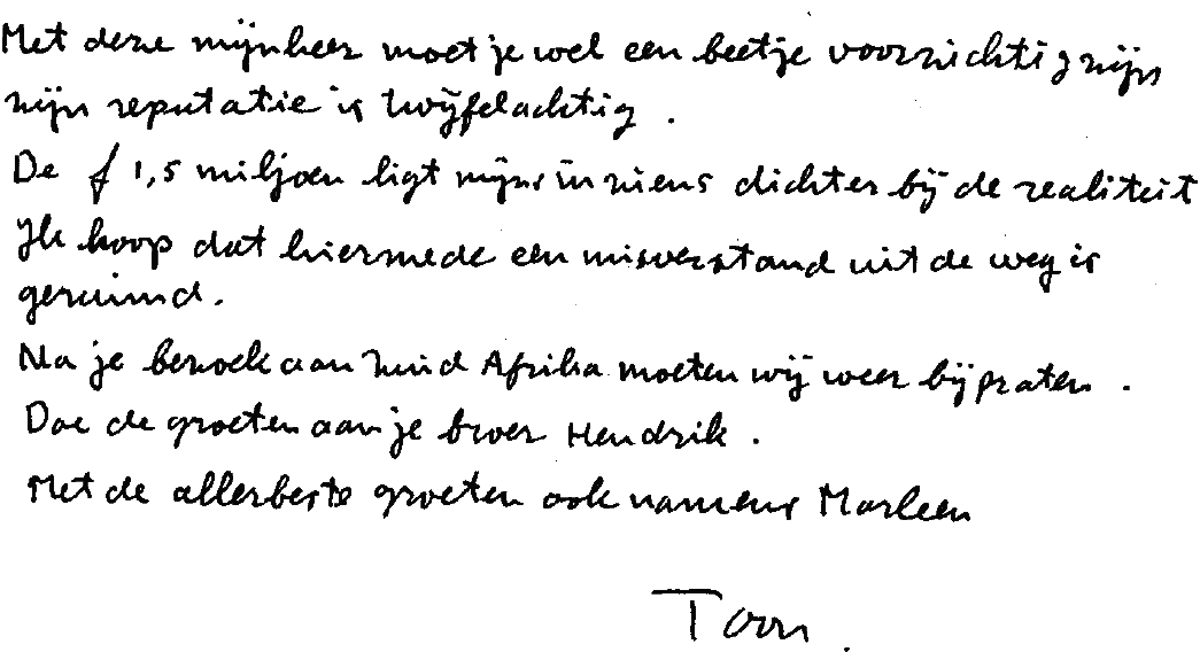 Met deze mijnheer moet je wel een beetje voorzichtig zijn
zijn reputatie is twijfelachtig.
De f 1,5 miljoen ligt mijns inziens dichter bij de realiteit
Ik hoop dat hiermede een misverstand uit de weg is
geruimd.
Na je bezoek aan Zuid Afrika moeten wij weer bijpraten.
Doe de groeten aan je broer Hendrik.
Met de allerbeste groeten ook namens Marleen
Toon.